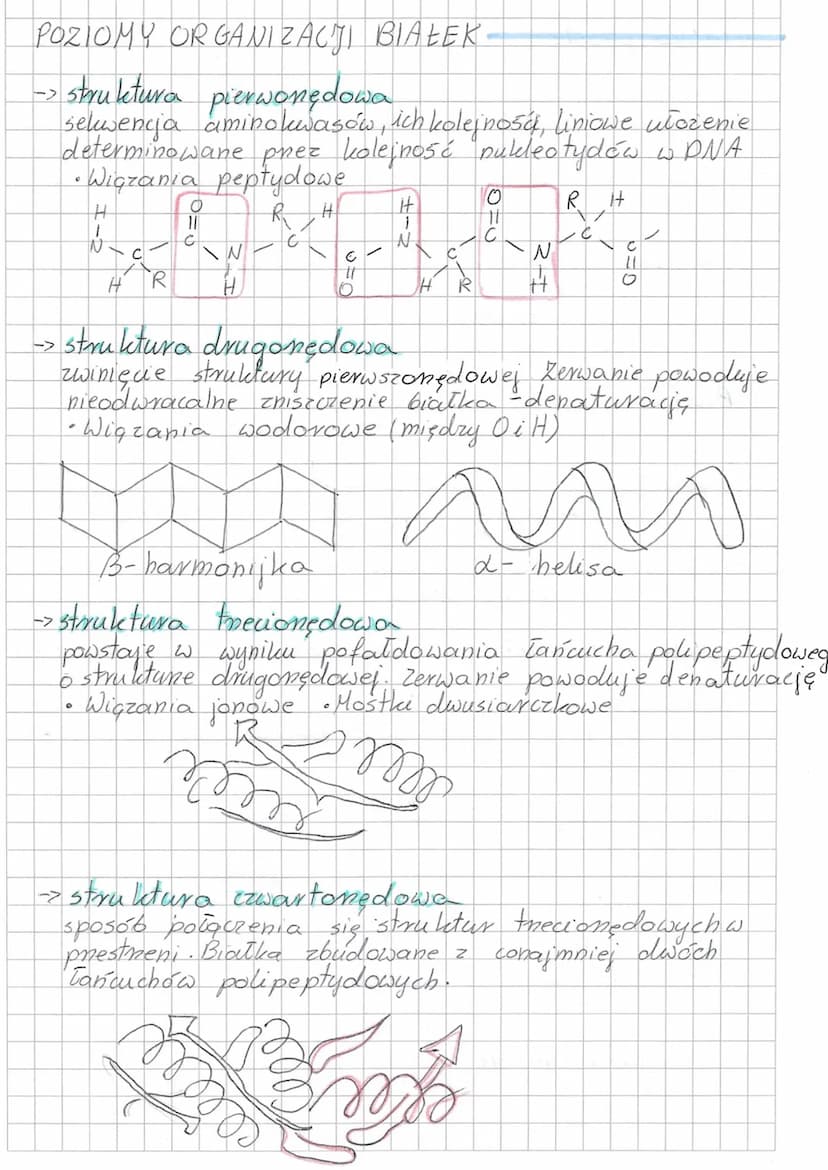 POZIOMY ORGANIZACJI BIAŁEK
-> struktura pierwonędowa
sekwencja aminokwasów, ich kolejność, liniowe ułożenie
determinowane przez kolejność nukleotydów w DNA
• Wiązania peptydowe
H O R H H O R H
N C C N C C N C C N C C
H R H O H R H O
-> struktura drugorzędowa
zwinięcie struktury pierwszorzędowej Zerwanie powoduje
nieodwracalne zniszczenie białka - denaturację
• Wiązania wodorowe (między O i H)
β- harmonijka α- helisa
-> struktura trzeciorzędowa
powstaje w wyniku pofałdowania łańcucha polipeptydoweg
o strukturze drugorzędowej. Zerwanie powoduje denaturację
• Wiązania jonowe • Mostki dwusiarczkowe
-> struktura czwartorzędowa
sposób połączenia się struktur trzeciorzędowych w
przestrzeni. Białka zbudowane z conajmniej dwóch
łańcuchów polipeptydowych.